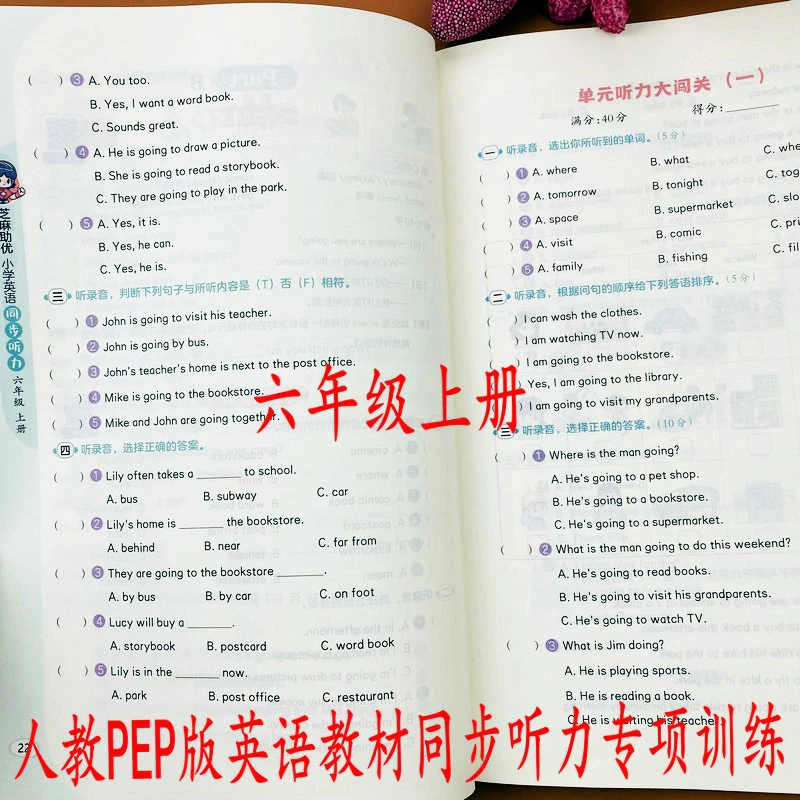 ( ) ③ A. You too.
B. Yes, I want a word book.
C. Sounds great.
( ) ④ A. He is going to draw a picture.
B. She is going to read a storybook.
C. They are going to play in the park.
( ) ⑤ A. Yes, it is.
B. Yes, he can.
C. Yes, I am.
三 听录音，判断下列句子与所听内容是（T）否（F）相符。
( ) ① John is going to visit his teacher.
( ) ② John is going by bus.
( ) ③ John's teacher's home is next to the post office.
( ) ④ Mike is going to the bookstore.
( ) ⑤ Mike and John are going together.
四 听录音，选择正确的答案。
( ) ① Lily often takes a ______ to school.
A. bus B. subway C. car
( ) ② Lily's home is ______ the bookstore.
A. behind B. near C. far from
( ) ③ They are going to the bookstore ______.
A. by bus B. by car C. on foot
( ) ④ Lucy will buy a ______.
A. storybook B. postcard C. word book
( ) ⑤ Lily is in the ______ now.
A. park B. post office C. restaurant
22
芝麻助优 小学英语 同步听力 六年级 上册
单元听力大闯关（一）
满分：40分 得分：______
一 听录音，选出你所听到的单词。（5分）
( ) ① A. where B. what
( ) ② A. tomorrow B. tonight
( ) ③ A. space B. supermarket
( ) ④ A. visit B. comic
( ) ⑤ A. family B. fishing
二 听录音，根据问句的顺序给下列答语排序。（5分）
( ) I can wash the clothes.
( ) I am watching TV now.
( ) I am going to the bookstore.
( ) Yes, I am going to the library.
( ) I am going to visit my grandparents.
三 听录音，选择正确的答案。（10分）
( ) ① Where is the man going?
A. He's going to a pet shop.
B. He's going to a bookstore.
C. He's going to a supermarket.
( ) ② What is the man going to do this weekend?
A. He's going to read books.
B. He's going to visit his grandparents.
C. He's going to watch TV.
( ) ③ What is Jim doing?
A. He is playing sports.
B. He is reading a book.
C. He is visiting his teacher.
六年级上册
人教PEP版英语教材同步听力专项训练